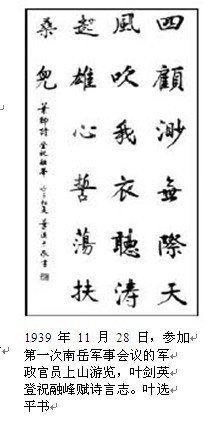 四顧渺無際天
風吹我衣聽濤
起雄心誓蕩扶
桑兒
葉帥詩 登祝融峯
1939 年 11 月 28 日，参加
第一次南岳军事会议的军
政官员上山游览，叶剑英
登祝融峰赋诗言志。叶选
平书